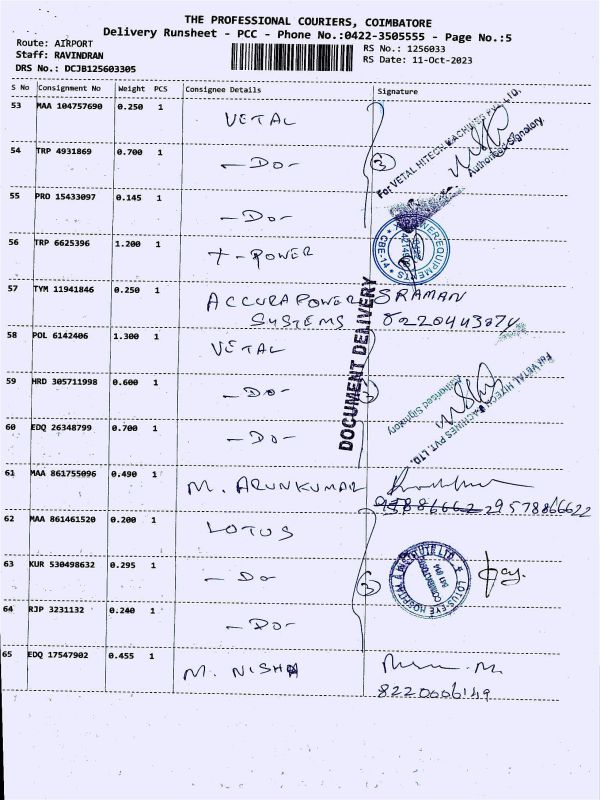 THE PROFESSIONAL COURIERS, COIMBATORE
Delivery Runsheet - PCC - Phone No.:0422-3505555 - Page No.:5
Route: AIRPORT
RS No.: 1256033
Staff: RAVINDRAN
RS Date: 11-Oct-2023
DRS No.: DCJB125603305
S No Consignment No Weight PCS Consignee Details Signature
53 MAA 104757690 0.250 1 VETAL
For VETAL HITECH MACHINES PVT. LTD.
Authorised Signatory.
54 TRP 4931869 0.700 1 -DO- 3
55 PRO 15433097 0.145 1 -DO-
56 TRP 6625396 1.200 1 X-POWER
POWER EQUIPMENTS
CBE-14
57 TYM 11941846 0.250 1 ACCURA POWER SRAMAN
SYSTEMS
DOCUMENT DELIVERY
58 POL 6142406 1.300 1 VETAL
For VETAL HITECH MACHINES PVT. LTD.
Authorised Signatory
59 HRD 305711998 0.600 1 -DO-
60 EDQ 26348799 0.700 1 -DO-
61 MAA 861755096 0.490 1 M. ARUNKUMAR
9578866622
62 MAA 861461520 0.200 1 LOTUS
LOTUS EYE HOSPITAL & INSTITUTE LTD.
COIMBATORE
641 014
63 KUR 530498632 0.295 1 -DO
64 RJP 3231132 0.240 1 -DO-
65 EDQ 17547902 0.455 1 M. NISHA
8220006149